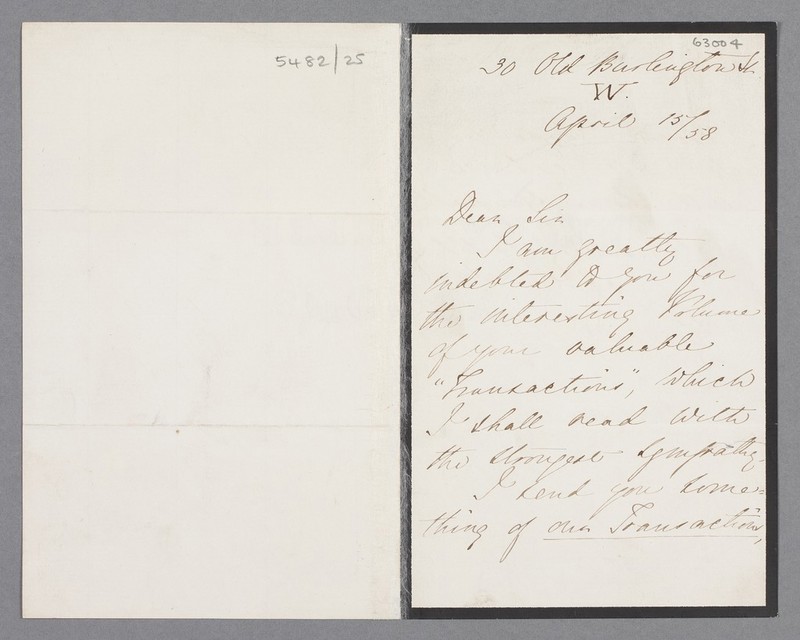 5482/25
63004
30 Old Burlington St.
W.
April 15/58
Dear Sir
I am greatly
indebted to you for
the interesting Volume
of your valuable
"Transactions", which
I shall read with
the strongest sympathy.
I send you some=
thing of our Transactions,